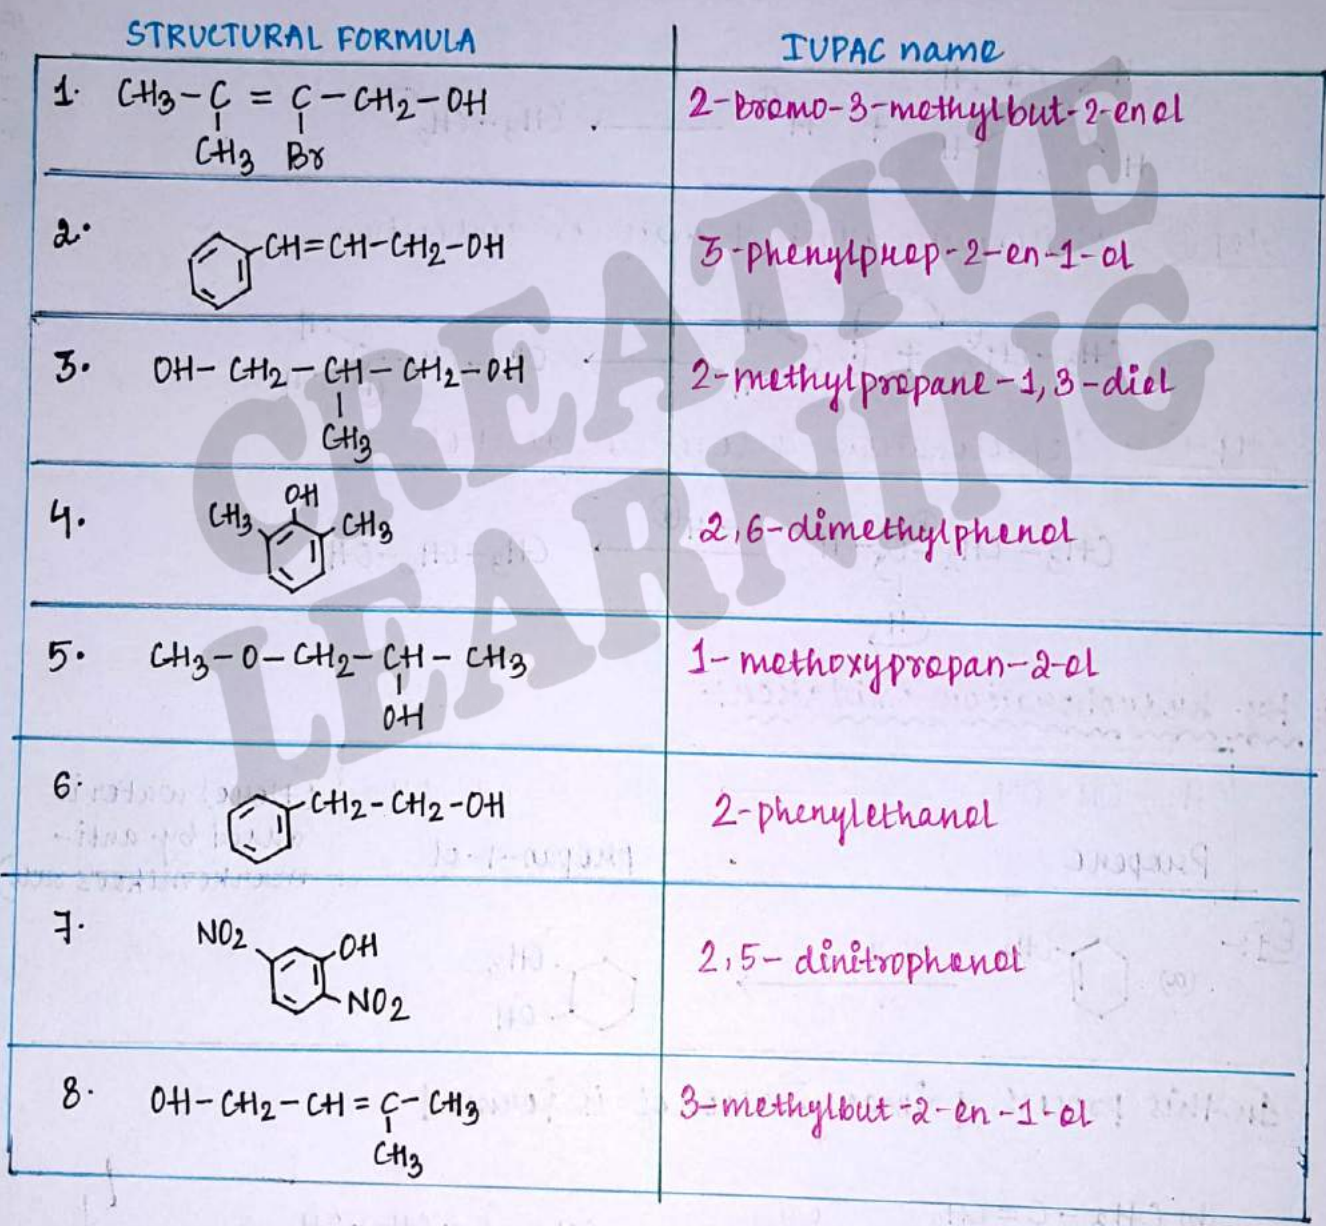 STRUCTURAL FORMULA
IUPAC name
1. CH3-C = C-CH2-OH
CH3 Br
2-bromo-3-methylbut-2-enol
2.
CH=CH-CH2-OH
3-phenylprop-2-en-1-ol
3. OH-CH2-CH-CH2-OH
CH3
2-methylpropane-1,3-diol
4.
OH
CH3 CH3
2,6-dimethylphenol
5. CH3-O-CH2-CH-CH3
OH
1-methoxypropan-2-ol
6.
CH2-CH2-OH
2-phenylethanol
7.
NO2 OH
NO2
2,5-dinitrophenol
8. OH-CH2-CH=C-CH3
CH3
3-methylbut-2-en-1-ol
CREATIVE
LEARNING